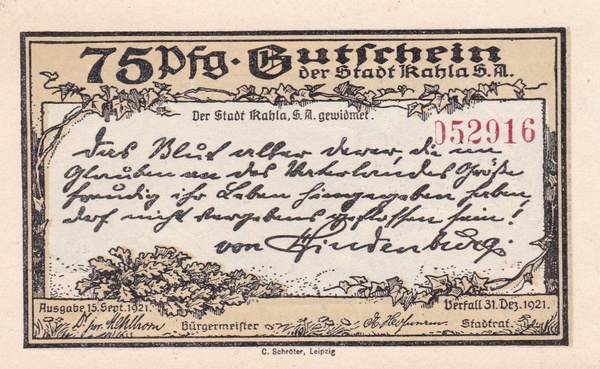 75 Pfg. Gutschein
der Stadt Kahla S.A.
Der Stadt Kahla, S.A. gewidmet.
052916
Das Blut aller derer, die im
Glauben an des Vaterlandes Größe
freudig ihr Leben hingegeben haben,
darf nicht vergebens geflossen sein!
von Hindenburg.
Ausgabe 15. Sept. 1921.
Verfall 31. Dez. 1921.
Bürgermeister
Stadtrat.
C. Schröter, Leipzig